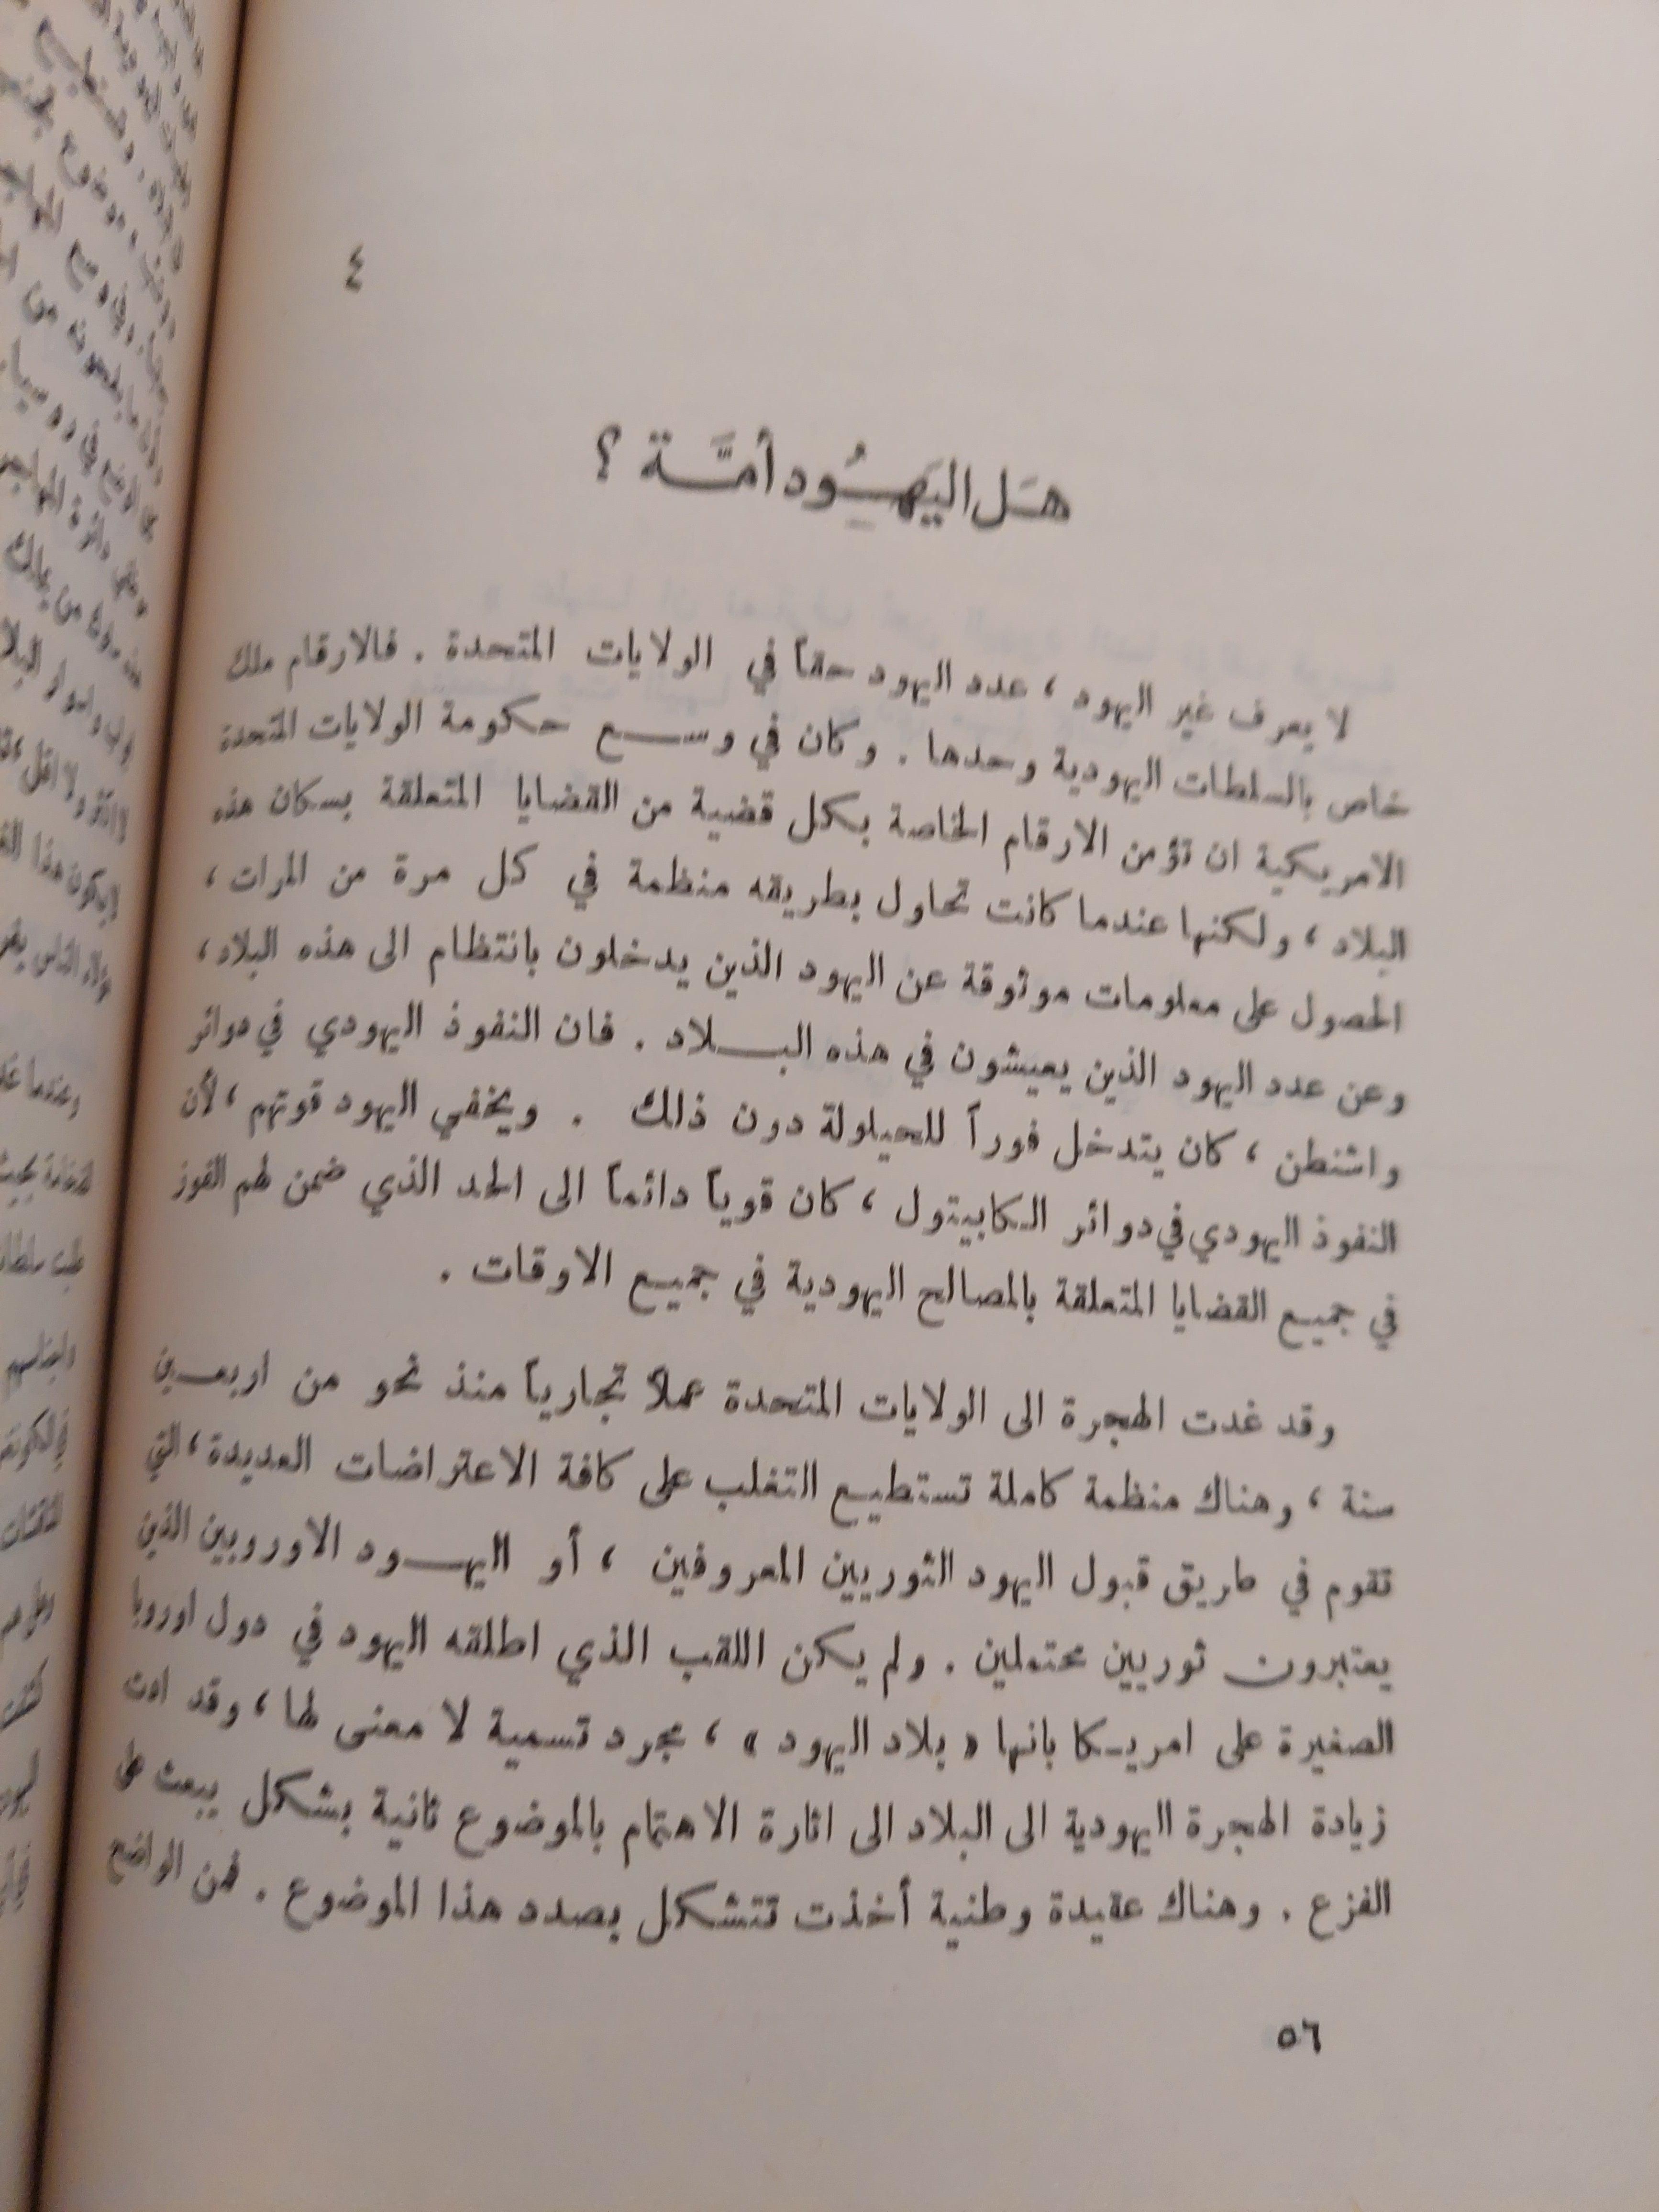 ٤
هَل اليَهُود أمَّة ؟
لا يعرف غير اليهود ، عدد اليهود حقاً في الولايات المتحدة . فالارقام ملك
خاص بالسلطات اليهودية وحدها . وكان في وسع حكومة الولايات المتحدة
الامريكية ان تؤمن الارقام الخاصة بكل قضية من القضايا المتعلقة بسكان هذه
البلاد ، ولكنها عندما كانت تحاول بطريقه منظمة في كل مرة من المرات ،
الحصول على معلومات موثوقة عن اليهود الذين يدخلون بانتظام الى هذه البلاد ،
وعن عدد اليهود الذين يعيشون في هذه البلاد . فان النفوذ اليهودي في دوائر
واشنطن ، كان يتدخل فوراً للحيلولة دون ذلك . ويخفي اليهود قوتهم ، لأن
النفوذ اليهودي في دوائر الكابيتول ، كان قوياً دائماً الى الحد الذي ضمن لهم الفوز
في جميع القضايا المتعلقة بالمصالح اليهودية في جميع الاوقات .
وقد غدت الهجرة الى الولايات المتحدة عملاً تجارياً منذ نحو من اربعين
سنة ، وهناك منظمة كاملة تستطيع التغلب على كافة الاعتراضات العديدة ، التي
تقوم في طريق قبول اليهود الثوريين المعروفين ، أو اليهود الاوروبيين الذين
يعتبرون ثوريين محتملين . ولم يكن اللقب الذي اطلقه اليهود في دول اوروبا
الصغيرة على امريكا بانها « بلاد اليهود » ، مجرد تسمية لا معنى لها ، وقد ادت
زيادة الهجرة اليهودية الى البلاد الى اثارة الاهتمام بالموضوع ثانية بشكل يبعث على
الفزع . وهناك عقيدة وطنية أخذت تتشكل بصدد هذا الموضوع . فمن الواضح
٥٦